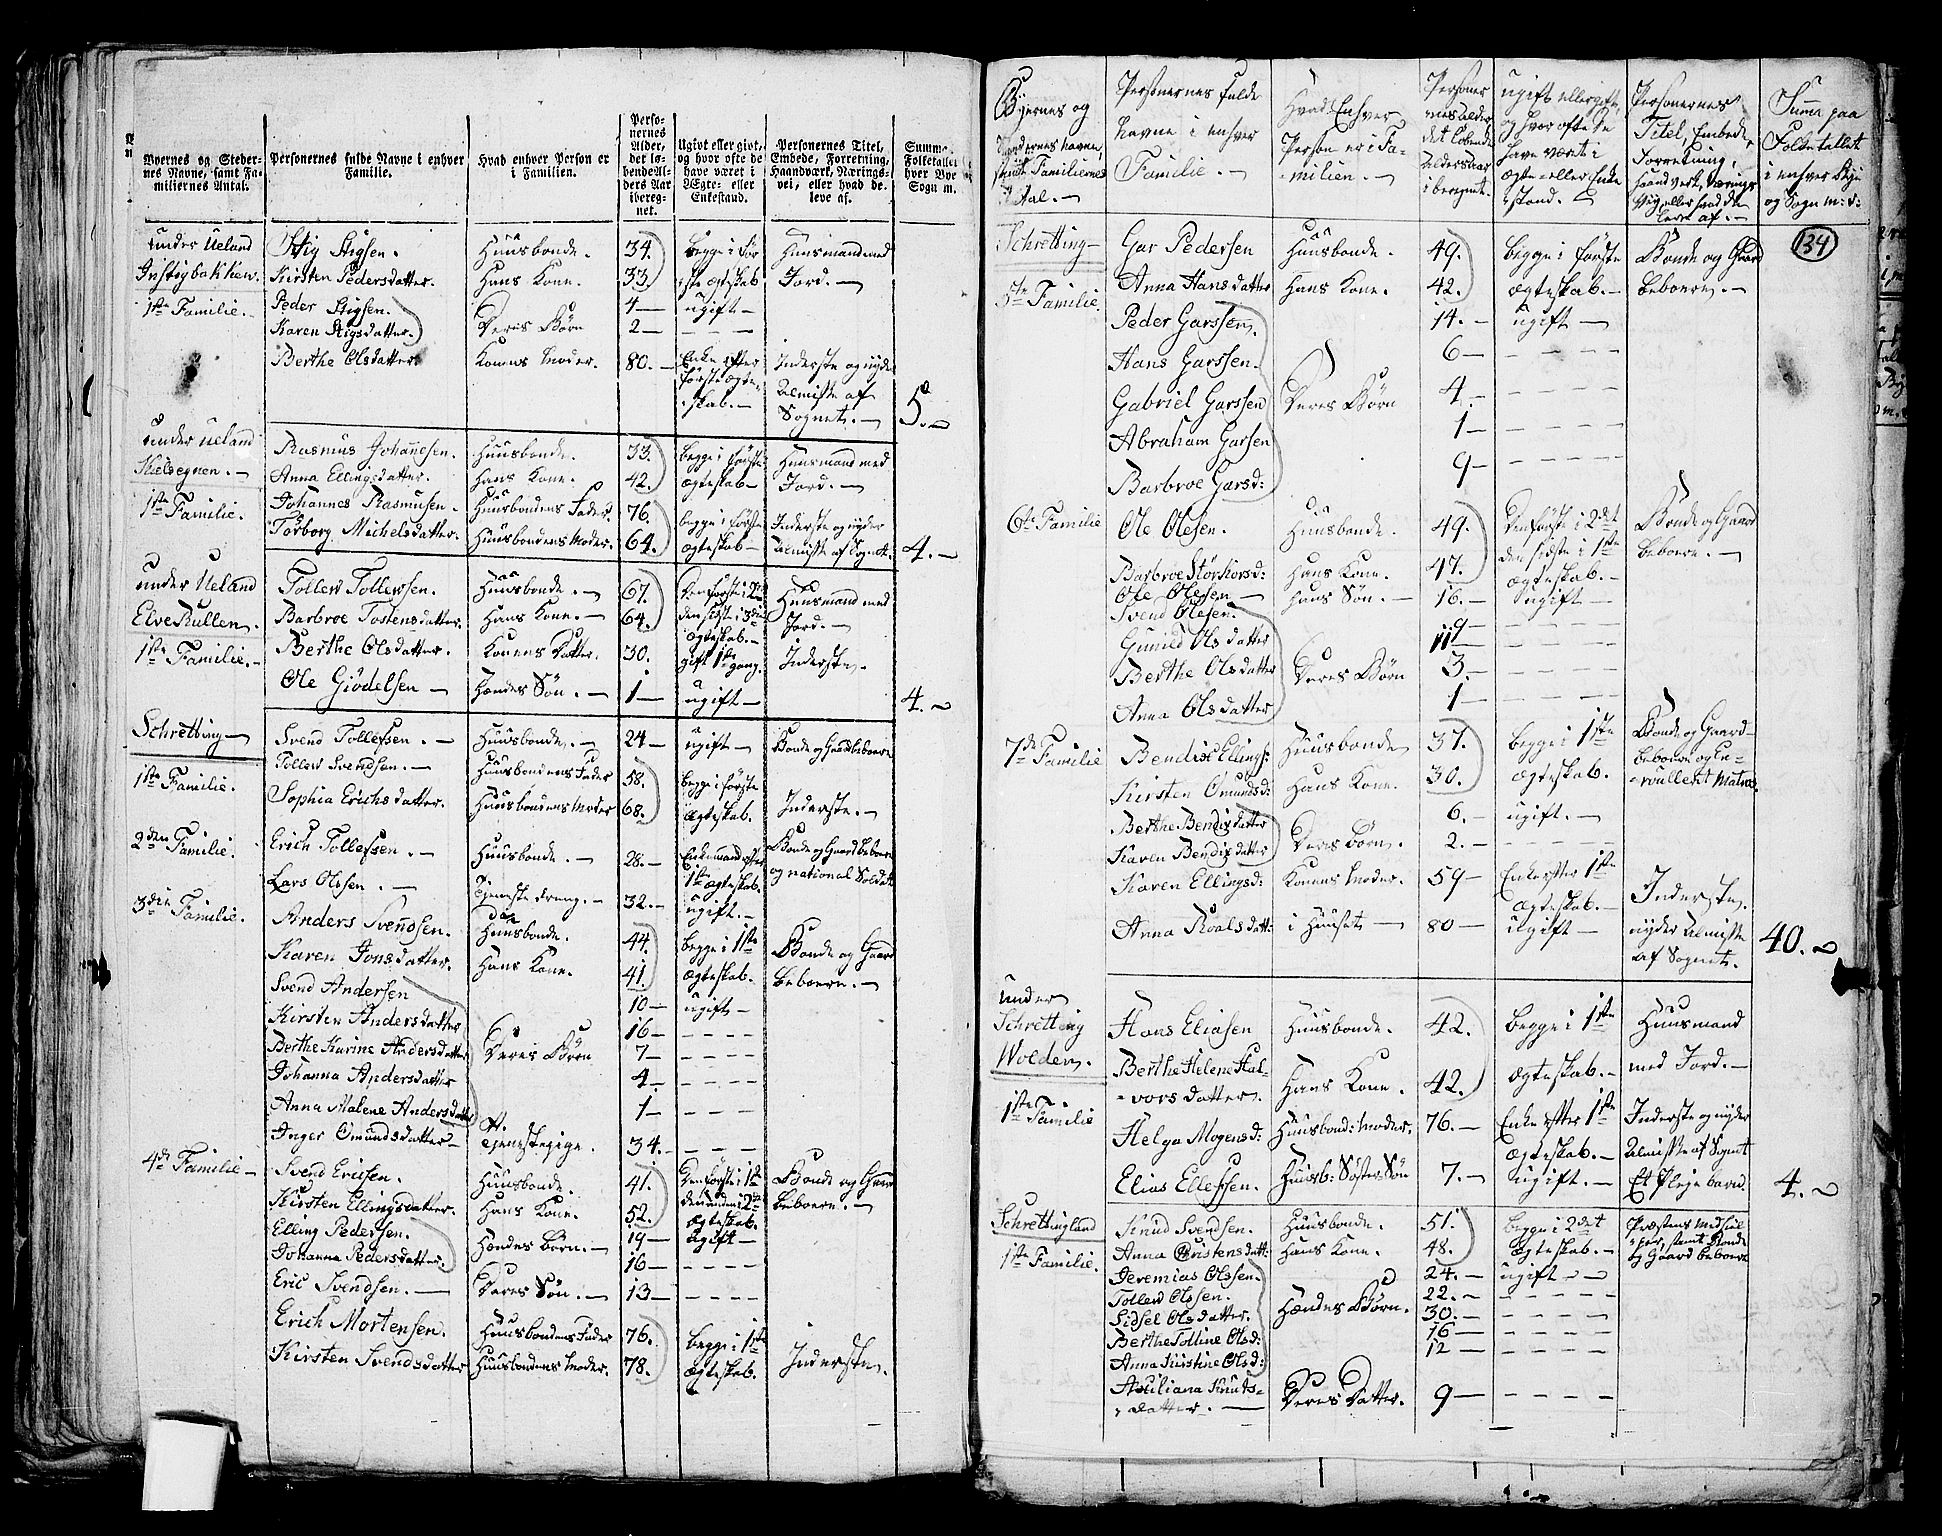 Byernes og Steder-
nes Navne, samt Fa-
miliernes Antal.
Personernes fulde Navne i enhver
Familie.
Hvad enhver Person er
i Familien.
Perso-
nernes
Alder,
det lø-
bende Al-
ders Aar
ibereg-
net.
Ugivt eller givt,
og hvor ofte de
have været i
Ægte- eller
Enkestand.
Personernes Titel,
Embede, Forretning,
Haandværk, Nærings-
vei, eller hvad de
leve af.
Summa
Folketallet
hver Bye
Sogn m.
under Ueland
1ste Familie.
Stig Stigsen. Huusbonde. 34. begge i før Huusmand med
Kirsten Pedersdatter. Hans Kone. 33. ste ægteskab Jord.
Peder Stigsen. 4 ugift
Karen Stigsdatter. Deres Børn 2 - - -
Berthe Olsdatter Konens Moder. 80. Enke efter Inderste og nyder
første ægte- Almisse af
skab. Sognet. 5.
under Ueland
1ste Familie.
Rasmus Johannesen. Huusbonde. 33. begge i første Huusmand med
Anna Ellingsdatter. Hans Kone. 42. ægteskab Jord.
Johannes Rasmusen. Huusbondens Fader. 76. begge i første Inderste og nyder
Torborg Michelsdatter. Huusbondens Moder. 64. ægteskab Almisse af Sognet. 4.
under Ueland
Elve Kullen.
1ste Familie.
Tollew Tollewsen. Huusbonde. 67. den første i 2den Huusmand med
Barbroe Tostensdatter. Hans Kone. 64. den sidste i 3die Jord.
ægteskab.
Berthe Olsdatter. Konens Datter. 30. gift 1ste gang. Inderste.
Ole Giødelsen Hendes Søn. 1 ugift 4.
Schretting
1ste Familie.
Svend Tollefsen. Huusbonde. 24 ugift Bonde og Gaardbeboere
Tollew Svendsen. Huusbondens Fader 58. begge i første
Sophia Erichsdatter. Huusbondens Moder 68. ægteskab. Inderste.
2den Familie.
Erich Tollefsen. Huusbonde. 28. Enkemand efter Bonde og Gaard beboere
1ste ægteskab. og national Soldat
Lars Olsen. Tjeneste dreng. 32. ugift.
3die Familie.
Anders Svendsen. Huusbonde. 44. begge i 1ste Bonde og Gaard
Karen Jonsdatter. Hans Kone. 41. ægteskab. beboere.
Svend Andersen 10 ugift
Kirsten Andersdatter 16 - - -
Berthe Karine Andersdatter Deres Børn 7 - - -
Johanna Andersdatter 4 - - -
Anna Malene Andersdatter 1 - - -
Inger Omundsdatter Tjenestepige. 34. - - -
4de Familie
Svend Ericsen. Huusbonde. 41. Den første i 1ste Bonde og Gaard
Kirsten Ellingsdatter. Hans Kone. 52. den anden i 2det beboere.
ægteskab.
Elling Pedersen. Hendes Børn. 19 ugift
Johanna Pedersdatter. 16 - - -
Eric Svendsen. Deres Søn. 13 - - -
Erich Mortensen. Huusbondens Fader 76. begge i 1ste
Kirsten Svendsdatter Huusbondens Moder. 78. ægteskab. Inderste.
Byernes og
Stedernes Navne,
samt Familiernes
Antal.
Personernes fulde
Navne i enhver
Familie.
Hvad Enhver
Person er i Fa-
milien.
Personer
nes alder
det løbende
Alders aar
iberegnet.
ugift eller gift,
og hvor ofte de
have været i
ægte- eller Enke
stand.
Personernes
Titel, Embede,
Forretning,
Haandverk, Nærings
vej, eller hvad de
leve af.
Summa paa
Folketallet
i enhver Bye
og Sogn m: v:
134
Schretting
5te Familie.
Gar Pedersen Huusbonde. 49. begge i første Bonde og Gaard
Anna Hansdatter Hans Kone. 42. ægteskab. beboere.
Peder Garssen. 14. ugift
Hans Garssen. 6 - - -
Gabriel Garssen Deres Børn 4. - - -
Abraham Garsen 1 - - -
Barbroe Garsd: 9 - - -
6te Familie
Ole Olesen. Huusbonde. 49. Den første i 2det Bonde og Gaard
den sidste i 1ste beboere.
Barbroe Storkorsd: Hans Kone. 47. ægteskab.
Ole Olesen Hans Søn. 16. ugift
Svend Olesen. 9 - - -
Gunild Olsdatter 11 - - -
Berthe Olsdatter Deres Børn 3. - - -
Anna Olsdatter 1 - - -
7de Familie
Bendix Ellings: Huusbonde 37. begge i 1ste Bonde og Gaard
Kirsten Omunds: Hans Kone. 30. ægteskab. beboere og En-
roullert Matros.
Berthe Bendixdatter 6. ugift.
Karen Bendixdatter Deres Børn. 2. - - -
Karen Ellingsd: Konens Moder. 59 Enke efter 1ste Inderste.
ægteskab.
Anna Roalsdatt: i Huuset 80 ugift nyder Almisse
af Sognet. 40.
under
Schretting
Wolden.
1ste Familie
Hans Eliasen Huusbonde. 42. begge i 1ste Huusmand
Berthe Helene Hal- ægteskab. med Jord.
vorsdatter. Hans Kone. 42.
Helga Mogensd: Huusbond: Moder. 76. Enke efter 1ste Inderste og nyder
ægteskab. Almisse af Sognet
Elias Ellefsen. Huusb: Søster Søn 7. ugift. Et Plejebarn. 4.
Schrettingland
1ste Familie.
Knud Svendsen. Huusbonde. 51. begge i 2det Præstens Medhiel
Anna Christensdatt: Hans Kone. 48. ægteskab. per, samt Bonde
og Gaard beboere
Jeremias Olssen. 24. ugift
Tollew Olssen. 22. - - -
Sidsel Olsdatter. Hendes Børn. 30. - - -
Berthe Tolline Olsd: 16 - - -
Anna Kirstine Olsd: 12 - - -
Juliana Knuds-
datter. Deres Datter. 9 - - -